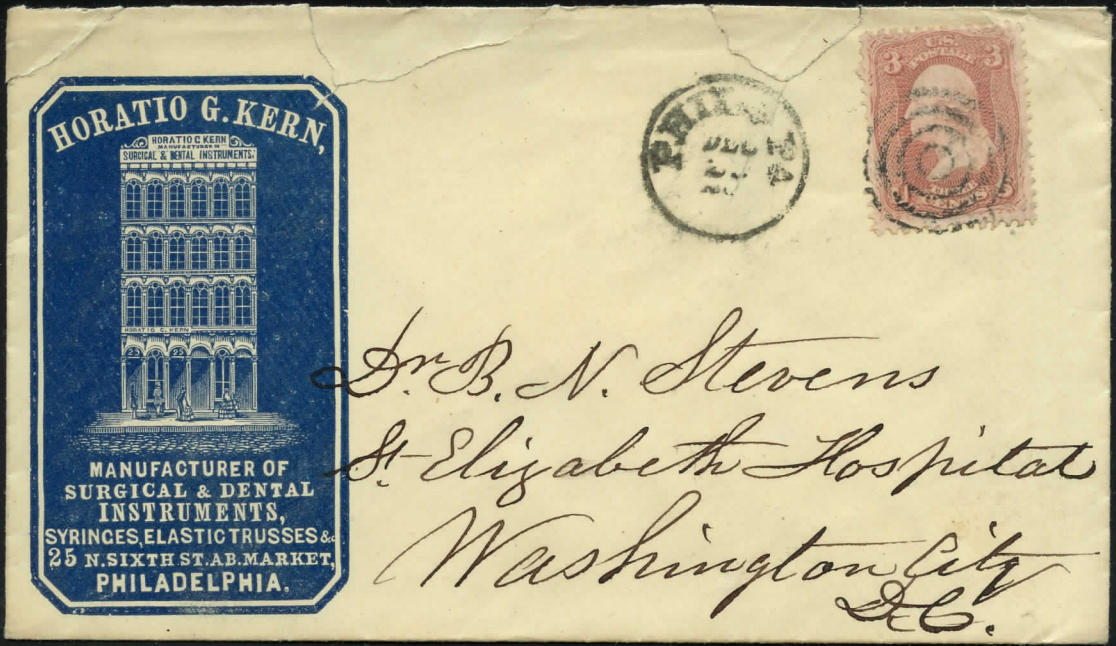 HORATIO G. KERN,
HORATIO G KERN
MANUFACTURER OF
SURGICAL & DENTAL INSTRUMENTS.
HORATIO G. KERN
25 25
MANUFACTURER OF
SURGICAL & DENTAL
INSTRUMENTS,
SYRINGES, ELASTIC TRUSSES &c
25 N. SIXTH ST. AB. MARKET,
PHILADELPHIA.
PHIL PA
DEC
3 U.S. 3
POSTAGE
Dr B. N. Stevens
St Elizabeth Hospital
Washington City
D.C.